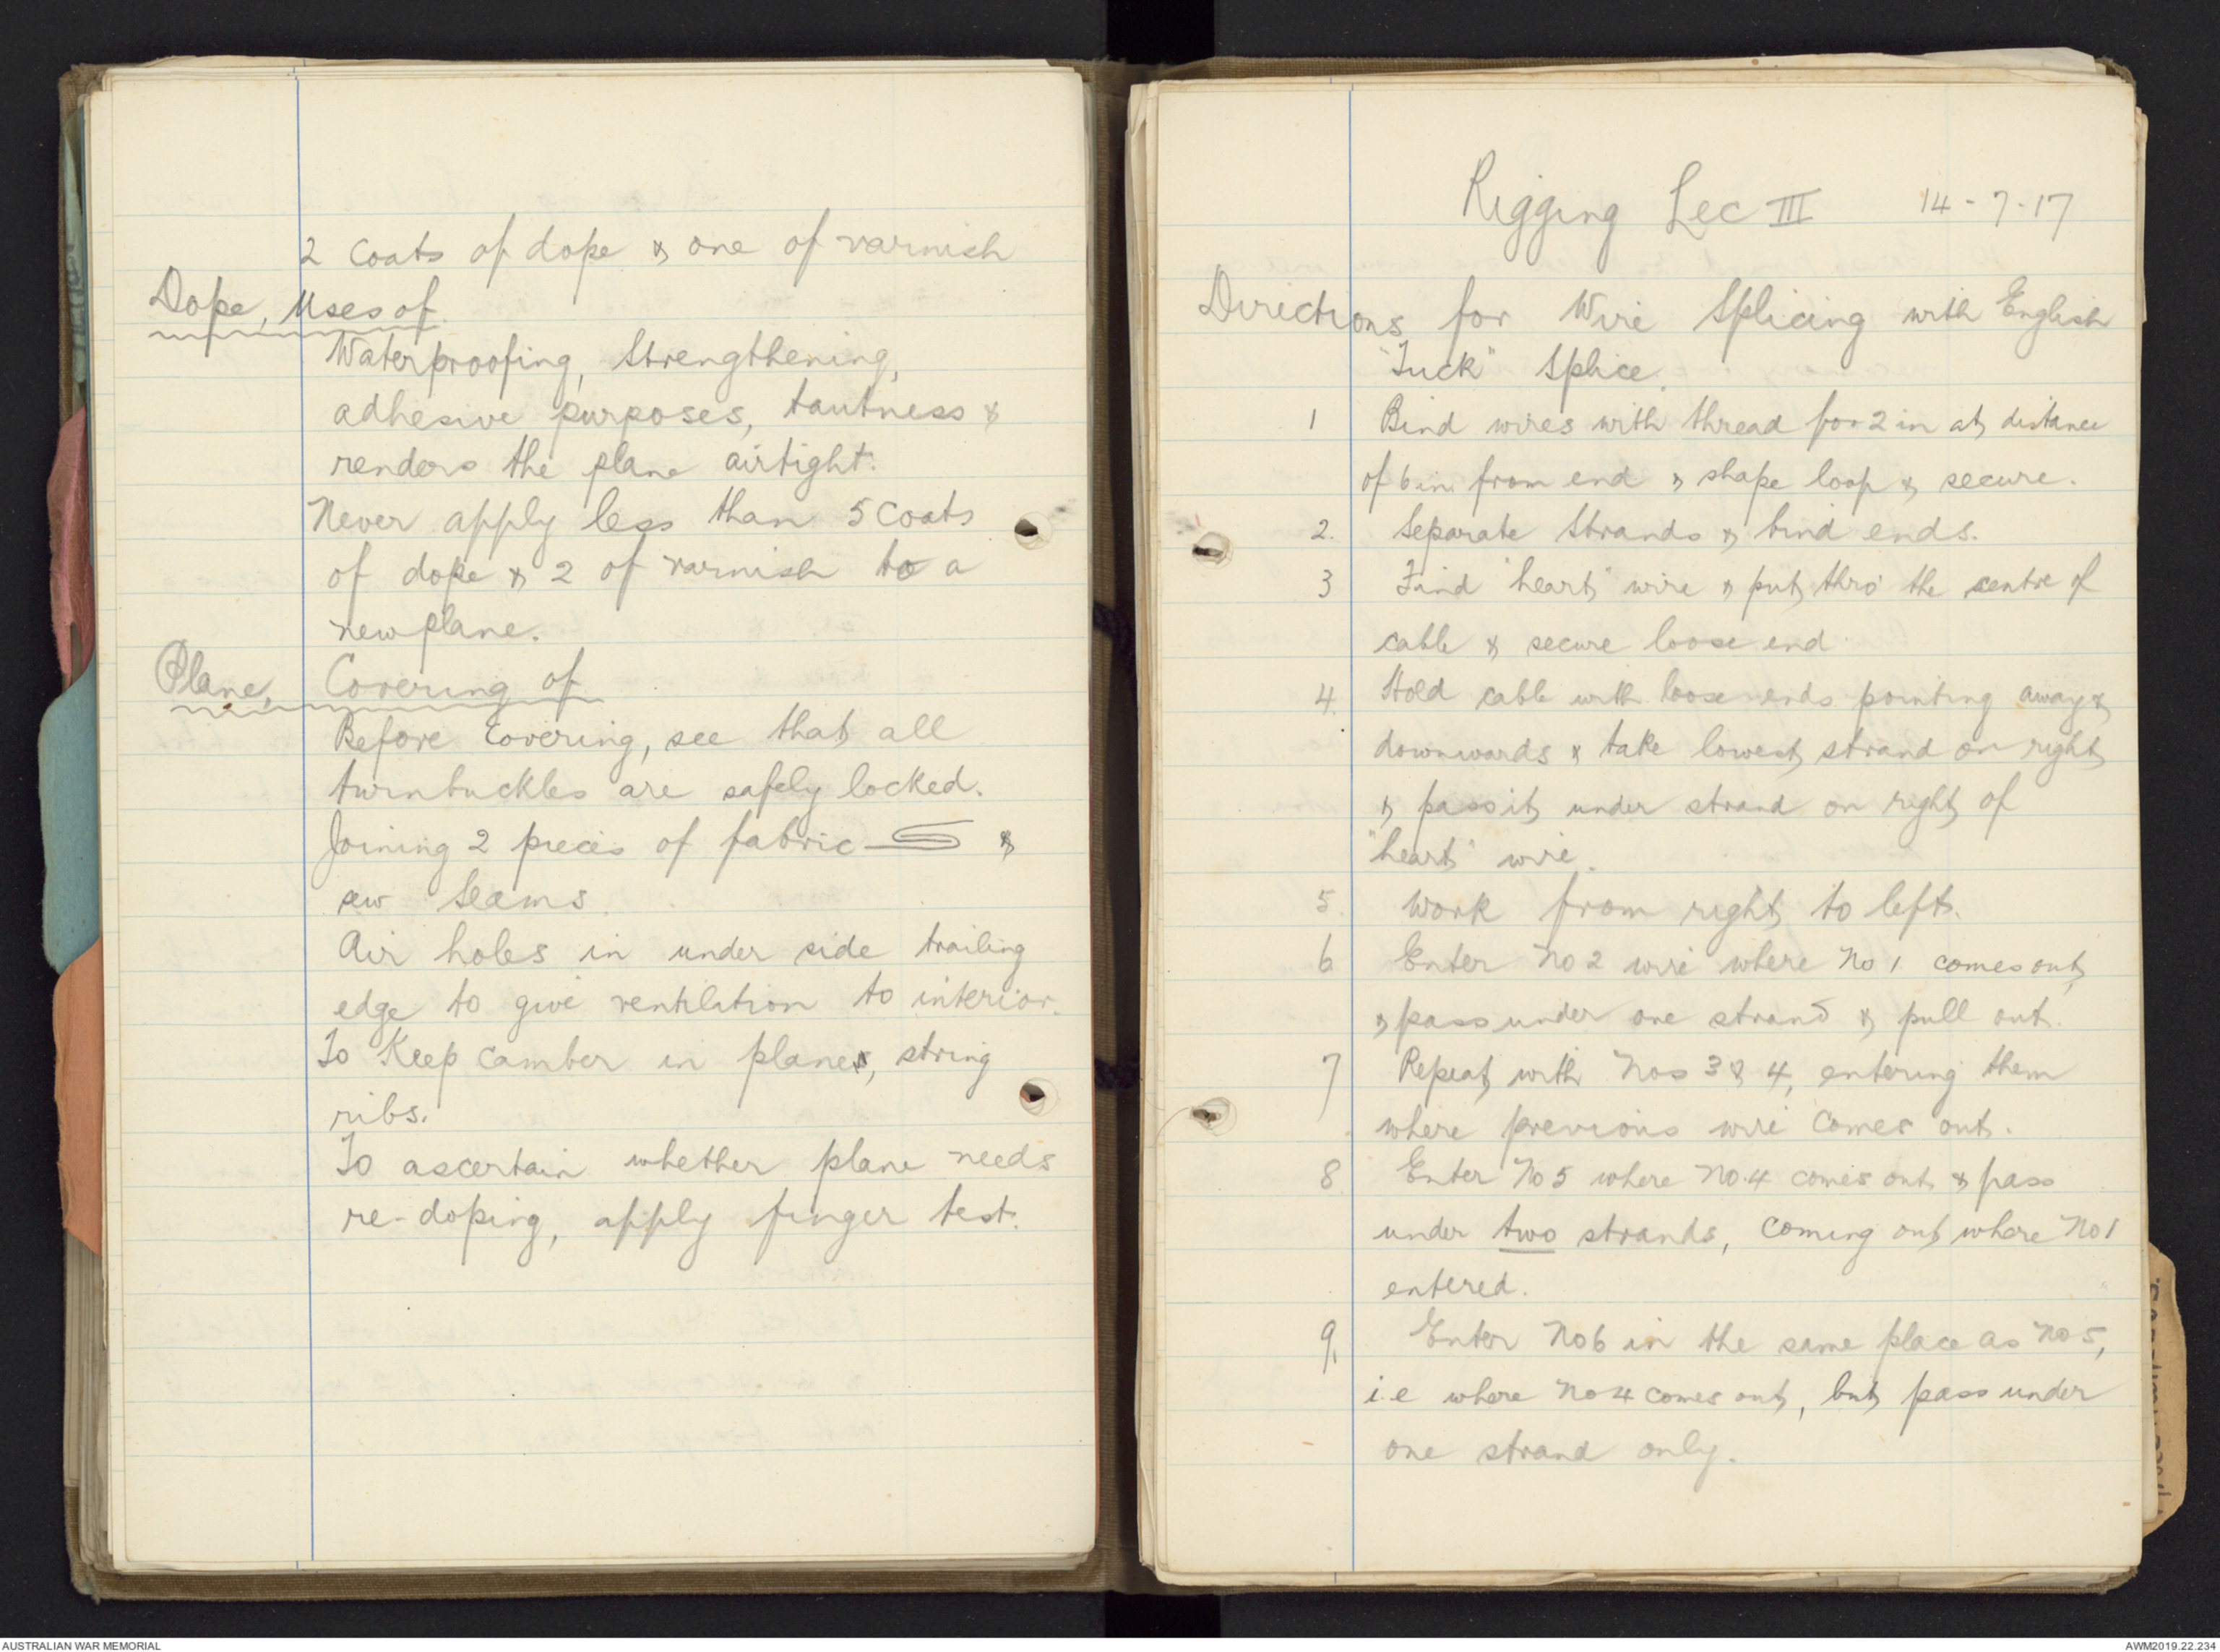 2 coats of dope & one of varnish
Dope, Uses of.
Waterproofing, Strengthening,
adhesive purposes, tautness &
renders the plane airtight.
Never apply less than 5 coats
of dope & 2 of varnish to a
new plane.
Plane, Covering of
Before Covering, see that all
turnbuckles are safely locked.
Joining 2 pieces of fabric &
sew Seams.
Air holes in under side trailing
edge to give ventilation to interior.
To Keep camber in planes, string
ribs.
To ascertain whether plane needs
re-doping, apply finger test.
Rigging Lec III 14-7-17
Directions for Wire Splicing with English
"Tuck" Splice.
1 Bind wires with thread for 2 in at distance
of 6 in from end & shape loop & secure.
2. Separate Strands & bind ends.
3 Find "heart" wire & put thro' the centre of
cable & secure loose end.
4. Hold cable with loose ends pointing away &
downwards & take lowest strand on right
& pass it under strand on right of
"heart" wire.
5. Work from right to left.
6 Enter No 2 wire where No 1 comes out
& pass under one strand & pull out.
7 Repeat with Nos 3 & 4, entering them
where previous wire comes out.
8. Enter No 5 where No. 4 comes out & pass
under two strands, coming out where No 1
entered.
9. Enter No 6 in the same place as No 5,
i.e where No 4 comes out, but pass under
one strand only.
AUSTRALIAN WAR MEMORIAL
AWM2019.22.234